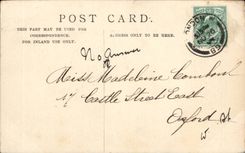 POST CARD.
THIS PART MAY BE USED FOR
CORRESPONDENCE.
FOR INLAND USE ONLY.
ADDRESS ONLY TO BE HERE.
No Answer
Miss Madeline
17 Castle Street East
Oxford St
W